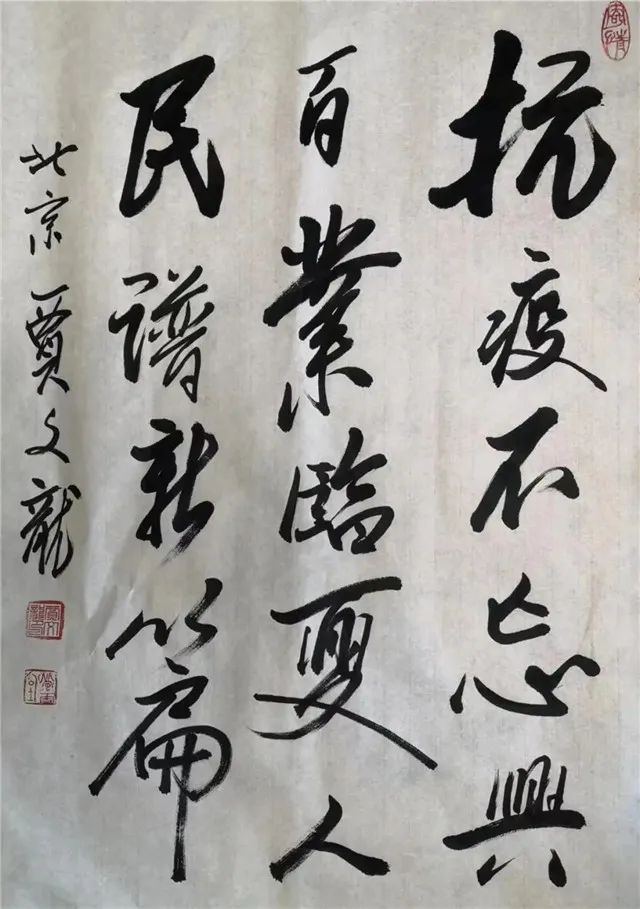 抗疫不忘興
百業臨夏人
民譜新篇
北京賈文龍